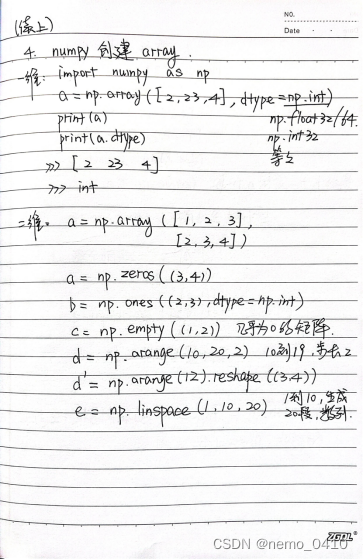 NO.
Date
(接上)
4. numpy 创建 array.
一维: import numpy as np
a = np.array([2,23,4], dtype=np.int)
print(a) np.float32/64
print(a.dtype) np.int32
等等
>>> [2 23 4]
>>> int
二维: a = np.array([1,2,3],
[2,3,4])
a = np.zeros((3,4))
b = np.ones((2,3),dtype=np.int)
c = np.empty((1,2)) 几乎为0的矩阵.
d = np.arange(10,20,2) 10到19,步长2
d' = np.arange(12).reshape((3,4))
e = np.linspace(1,10,20) 1到10,生成
20段,数列.
CSDN @nemo_0410